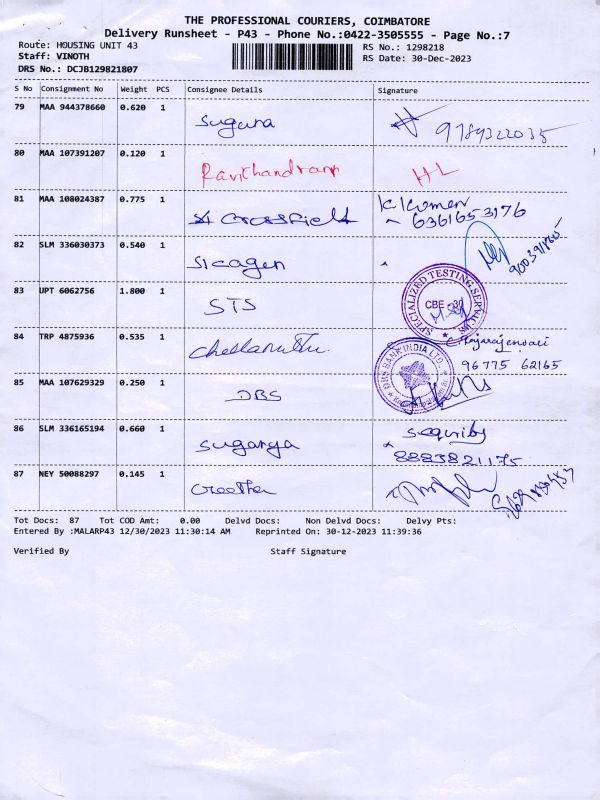 THE PROFESSIONAL COURIERS, COIMBATORE
Delivery Runsheet - P43 - Phone No.:0422-3505555 - Page No.:7
Route: HOUSING UNIT 43
RS No.: 1298218
Staff: VINOTH
RS Date: 30-Dec-2023
DRS No.: DCJB129821807
S No Consignment No Weight PCS Consignee Details Signature
79 MAA 944378660 0.620 1 Suguna 9789322035
80 MAA 107391207 0.120 1 Ravichandran HL
81 MAA 108024387 0.775 1 Crossfield K Kumar 6361653176
82 SLM 336030373 0.540 1 Sicagen
83 UPT 6062756 1.800 1 STS
SPECIALIZED TESTING SERVICE
CBE - 30
84 TRP 4875936 0.535 1 Chellamuthu 96775 62165
DBS BANK INDIA LTD.
85 MAA 107629329 0.250 1 DBS
86 SLM 336165194 0.660 1 Suganya Security 8883821175
87 NEY 50088297 0.145 1 Creether
Tot Docs: 87 Tot COD Amt: 0.00 Delvd Docs: Non Delvd Docs: Delvy Pts:
Entered By :MALARP43 12/30/2023 11:30:14 AM Reprinted On: 30-12-2023 11:39:36
Verified By Staff Signature